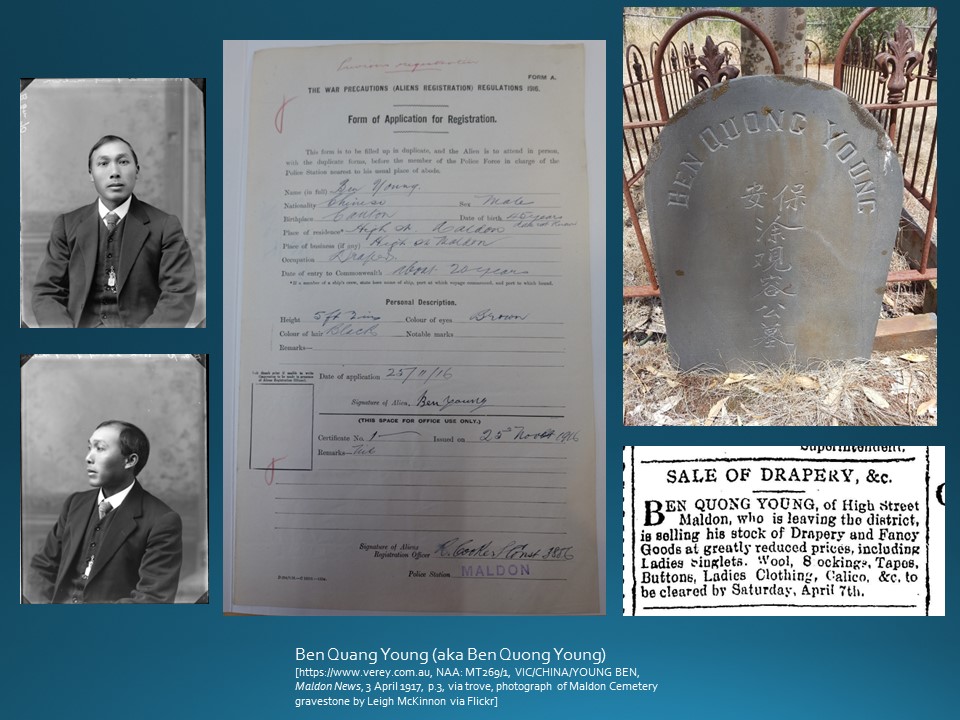 FORM A.
THE WAR PRECAUTIONS (ALIENS REGISTRATION) REGULATIONS 1916.
Form of Application for Registration.
This form is to be filled up in duplicate, and the Alien is to attend in person,
with the duplicate forms, before the member of the Police Force in charge of the
Police Station nearest to his usual place of abode.
Name (in full) Ben Young.
Nationality Chinese Sex Male
Birthplace Canton Date of birth 46 years
Place of residence* High St. Maldon
Place of business (if any) High St Maldon
Occupation Draper
Date of entry to Commonwealth about 20 years
*If a member of a ship's crew, state here name of ship, port at which voyage commenced, and port to which bound.
Personal Description.
Height 5 ft 3 ins Colour of eyes Brown
Colour of hair Black Notable marks
Remarks—
Date of application 25/11/16
Signature of Alien, Ben Young
(THIS SPACE FOR OFFICE USE ONLY.)
Certificate No. 1 Issued on 25th 1916
Remarks—
Signature of Aliens
Registration Officer
Police Station MALDON
BEN QUONG YOUNG
安 保
涂
公
墓
Superintendent.
SALE OF DRAPERY, &c.
BEN QUONG YOUNG, of High Street
Maldon, who is leaving the district,
is selling his stock of Drapery and Fancy
Goods at greatly reduced prices, including
Ladies Singlets. Wool, S ockings, Tapes,
Buttons, Ladies Clothing, Calico, &c. to
be cleared by Saturday, April 7th.
Ben Quang Young (aka Ben Quong Young)
[https://www.verey.com.au, NAA: MT269/1, VIC/CHINA/YOUNG BEN,
Maldon News, 3 April 1917, p.3, via trove, photograph of Maldon Cemetery
gravestone by Leigh McKinnon via Flickr]